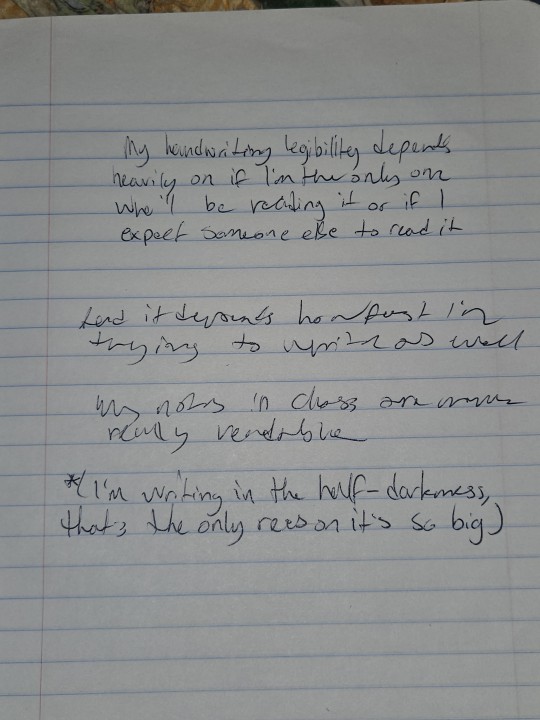 My handwriting legibility depends
heavily on if I'm the only one
who'll be reading it or if I
expect someone else to read it
And it depends how fast I'm
trying to write as well
My notes in class are never
really readable
*(I'm writing in the half-darkness,
that's the only reason it's so big)